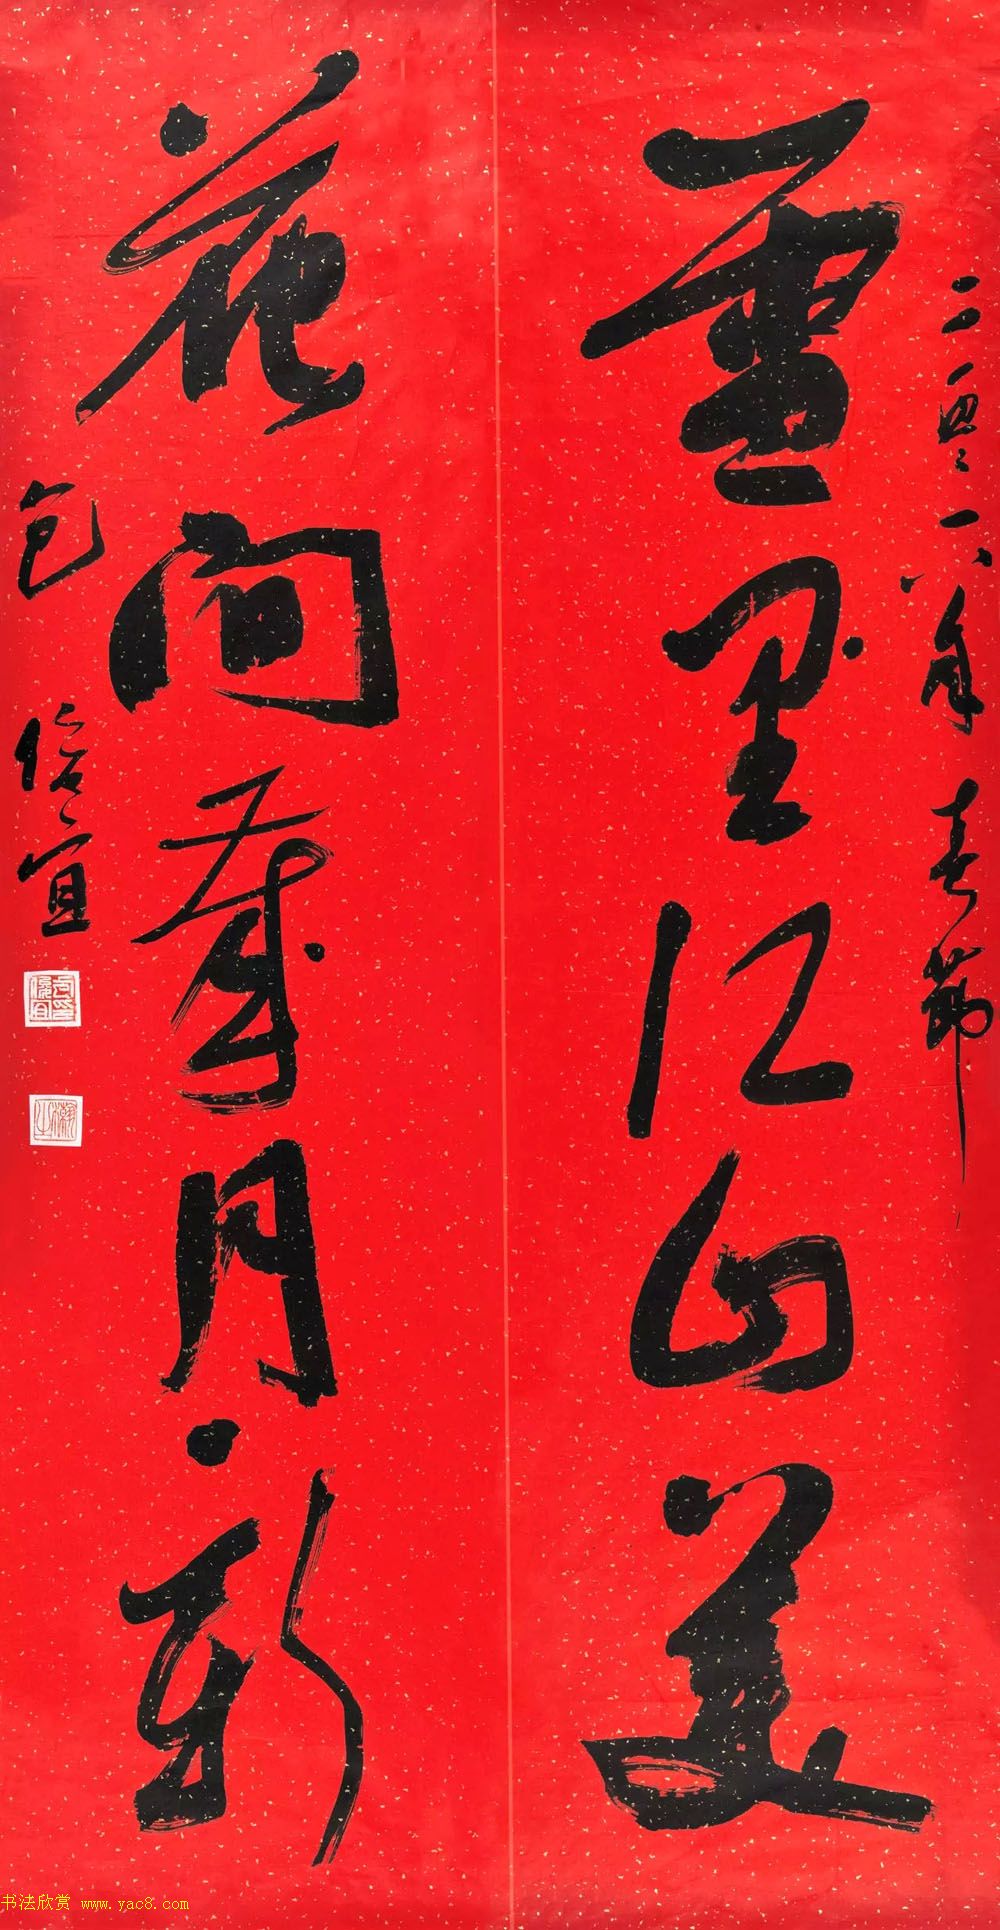 二〇一八年春节
雪里江山美
花间岁月新
包俊宜
书法欣赏 www.yac8.com